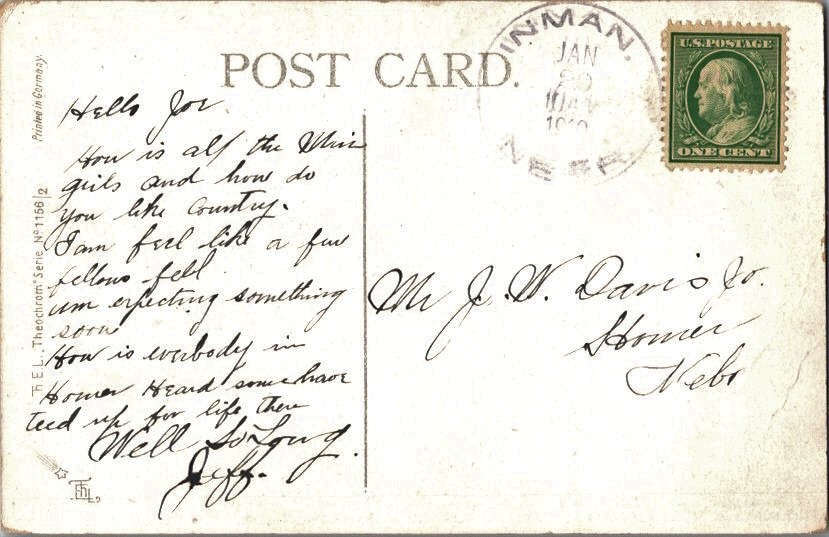 POST CARD.
INMAN.
JAN
NEBR
U.S. POSTAGE
ONE CENT
Printed in Germany.
T.H.E.L. "Theochrom" Serie Nº 1156/2
Hello Joe
How is all the
girls and how do
you like Country.
I am feel like a few
fellows fell
um expecting something
soon
How is everbody in
Homer Heard some have
teed up for life there
Well So Long.
Jeff.
Mr J. W. Davis Jr.
Homer
Nebr